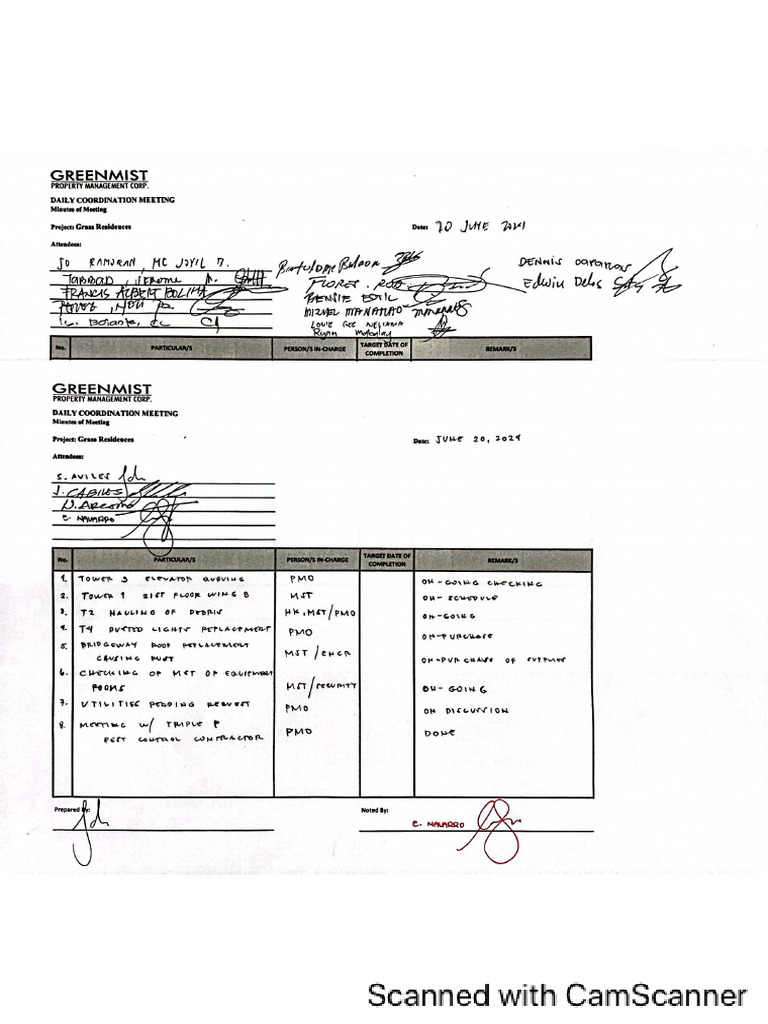 GREENMIST
PROPERTY MANAGEMENT CORP.
DAILY COORDINATION MEETING
Minutes of Meeting
Project: Grass Residences
Date: 20 JUNE
Attendees:
JO RAMORAN, MC JOVIL D.
DENNIS
TABBOAD, JEROME A.
FLORES, ROD
Edwin Delos
FRANCIS ALBERT BOLIMA
BENSIE
MANAHAO
LOUIE GEE
Ryan
No. PARTICULAR/S PERSON/S IN-CHARGE TARGET DATE OF COMPLETION REMARK/S
GREENMIST
PROPERTY MANAGEMENT CORP.
DAILY COORDINATION MEETING
Minutes of Meeting
Project: Grass Residences
Date: JUNE 20, 2024
Attendees:
S. AVILES
J. CABILES
E. NAVARRO
No. PARTICULAR/S PERSON/S IN-CHARGE TARGET DATE OF COMPLETION REMARK/S
1. TOWER 3 ELEVATOR QUEUING PMO ON-GOING CHECKING
2. TOWER 1 21ST FLOOR WING B MST ON-SCHEDULE
3. T2 HAULING OF DEBRIS HK, MST/PMO ON-GOING
4. T4 BUSTED LIGHTS REPLACEMENT PMO ON-PURCHASE
5. BRIDGEWAY ROOF REPLACEMENT
CAUSING RUST MST/ENGR ON-PURCHASE OF SUPPLIES
6. CHECKING OF MST OF EQUIPMENT
ROOMS MST/SECURITY ON-GOING
7. UTILITIES PENDING REQUEST PMO ON DISCUSSION
8. MEETING W/ TRIPLE P
PEST CONTROL CONTRACTOR PMO DONE
Prepared By:
Noted By:
E. NAVARRO
Scanned with CamScanner